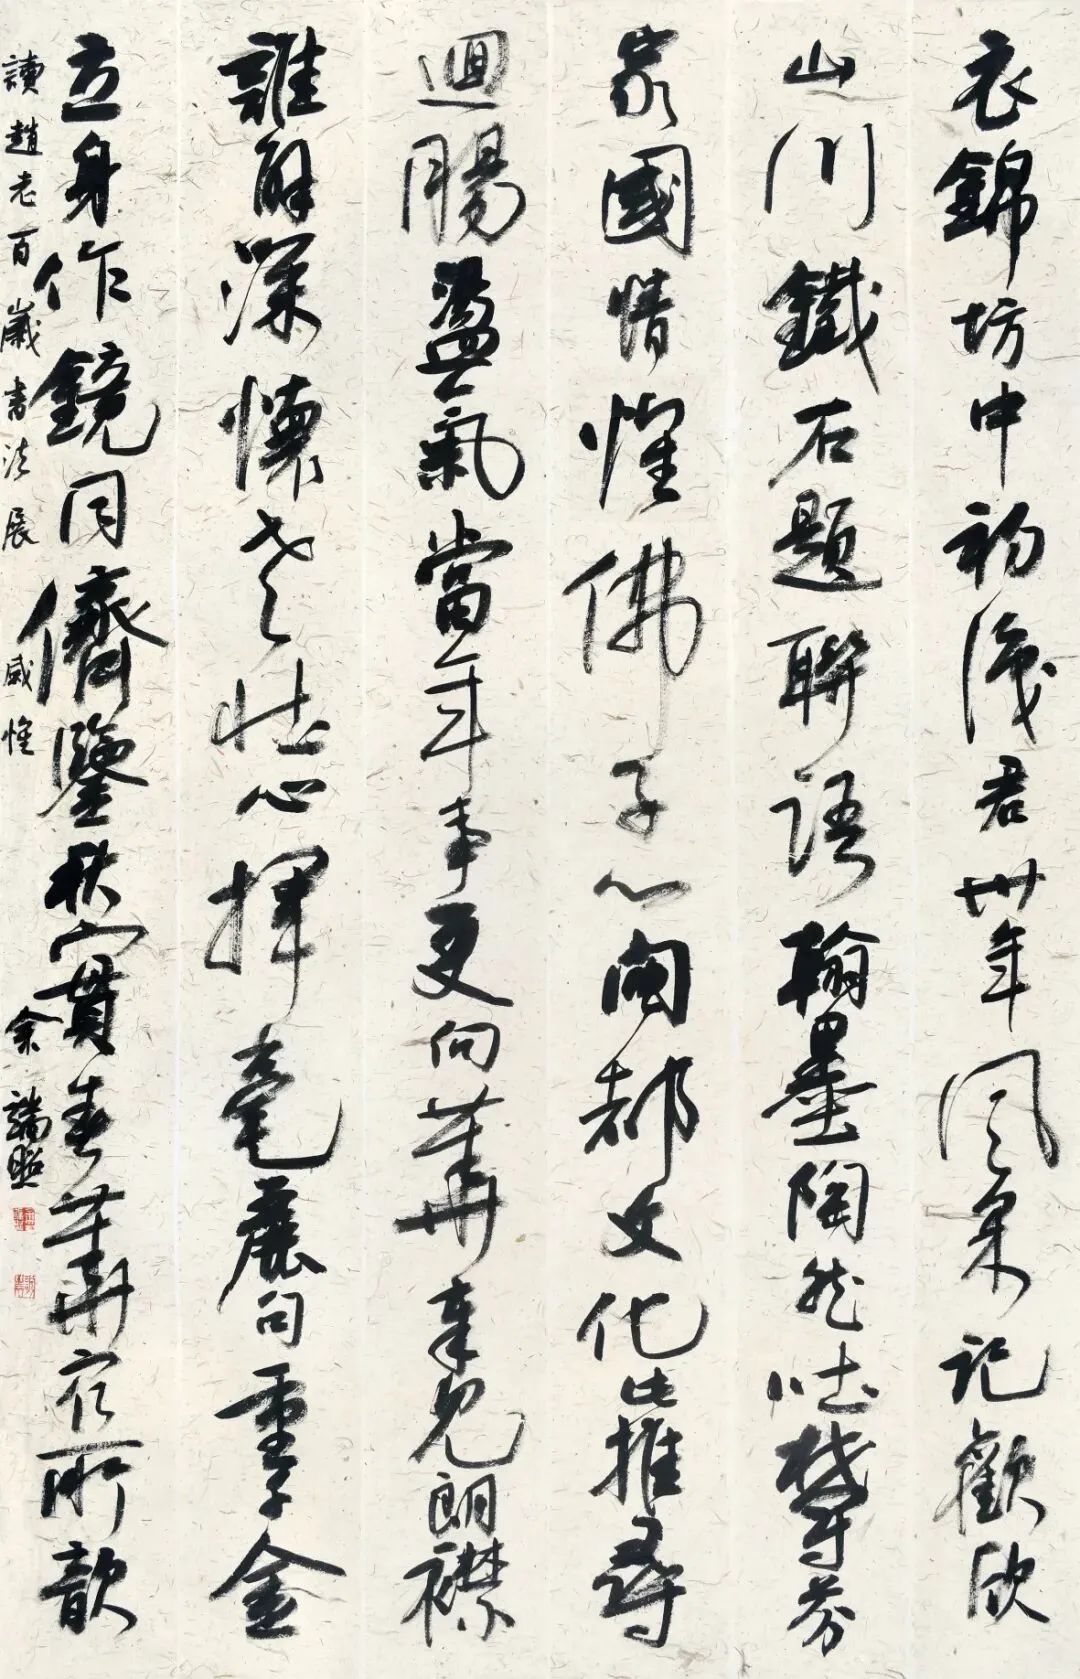 衣錦坊中初識君卅年風采記歡欣
山川鐵石題聯語翰墨陶然芬
家國情佛子心閩都文化此推尋
迴腸盪氣當年事更向華章見朗襟
誰解深懷老心揮毫麗句重千金
立身作鏡同儕鑒秋實春華眾所歆
讀趙老百歲書法展感懷 余端照